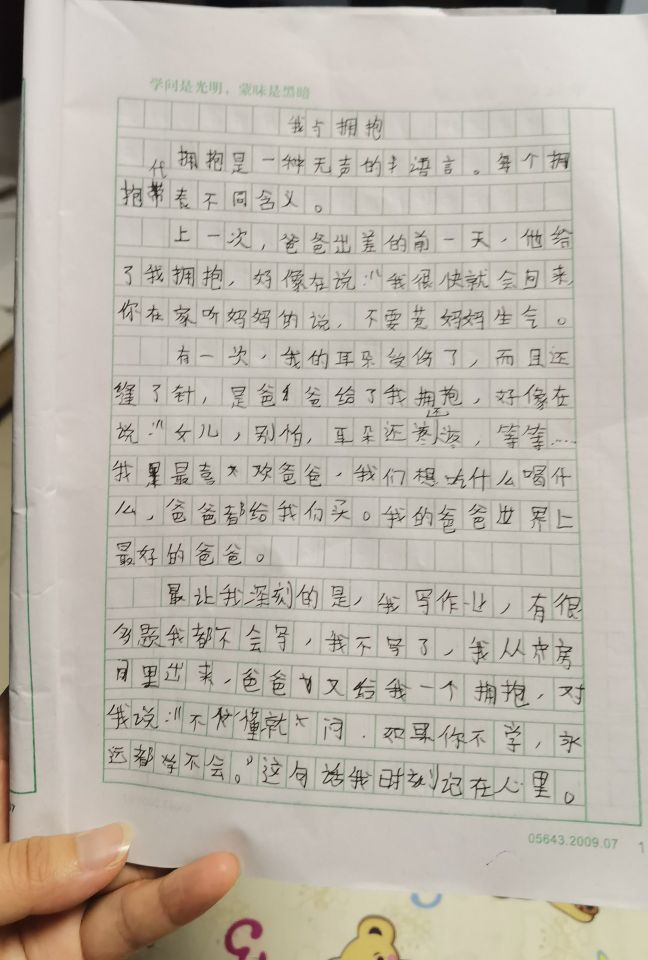 学问是光明，蒙昧是黑暗
我与拥抱
拥抱是一种无声的语言。每个拥
抱代表不同含义。
上一次，爸爸出差的前一天，他给
了我拥抱，好像在说：“我很快就会回来，
你在家听妈妈的说，不要惹妈妈生气。
有一次，我的耳朵受伤了，而且还
缝了针，是爸爸给了我拥抱，好像在
说：“女儿，别怕，耳朵还疼，等等……
我最喜欢爸爸，我们想吃什么喝什
么，爸爸都给我们买。我的爸爸世界上
最好的爸爸。
最让我深刻的是，我写作业，有很
多题我都不会写，我不写了，我从房
间里出来，爸爸又给我一个拥抱，对
我说：“不懂就问，如果你不学，永
远都学不会。”这句话我时刻记在心里。
05643.2009.07 1